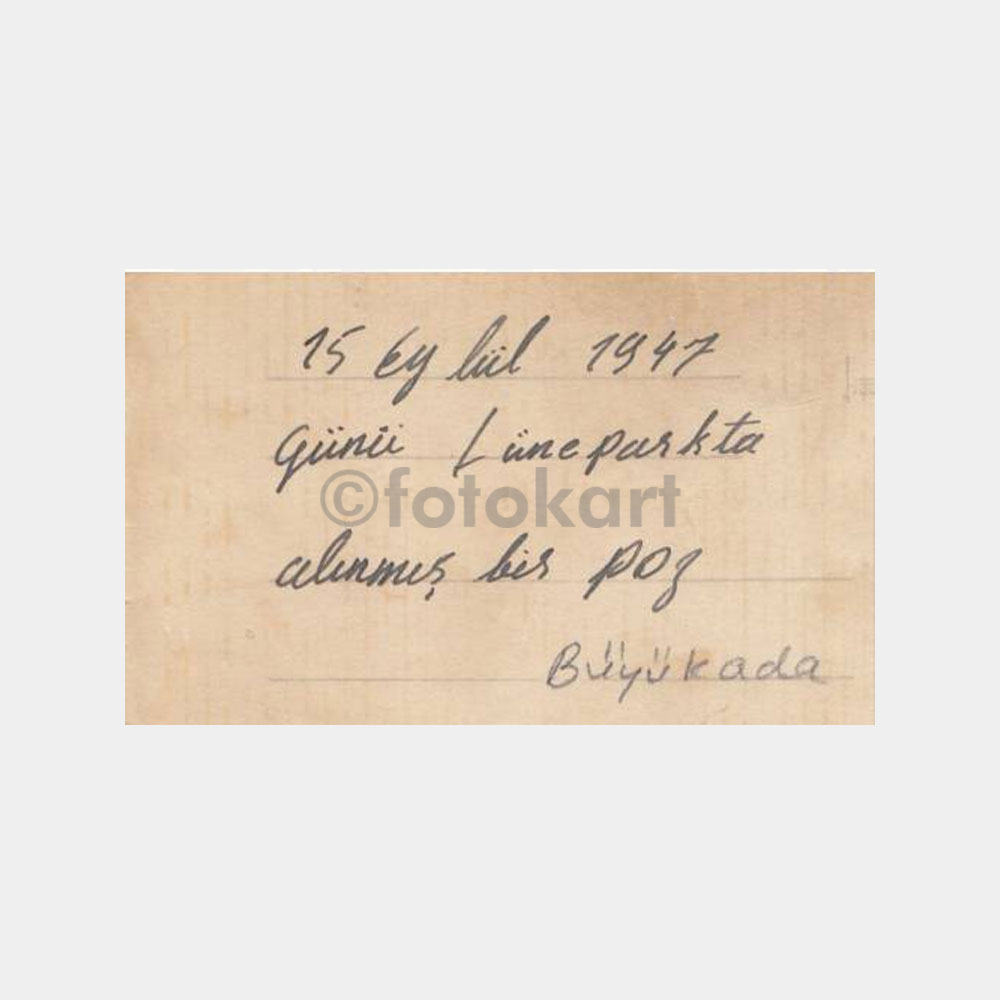 15 Eylül 1947
günü Lüneparkta
©fotokart
alınmış bir poz
Büyükada